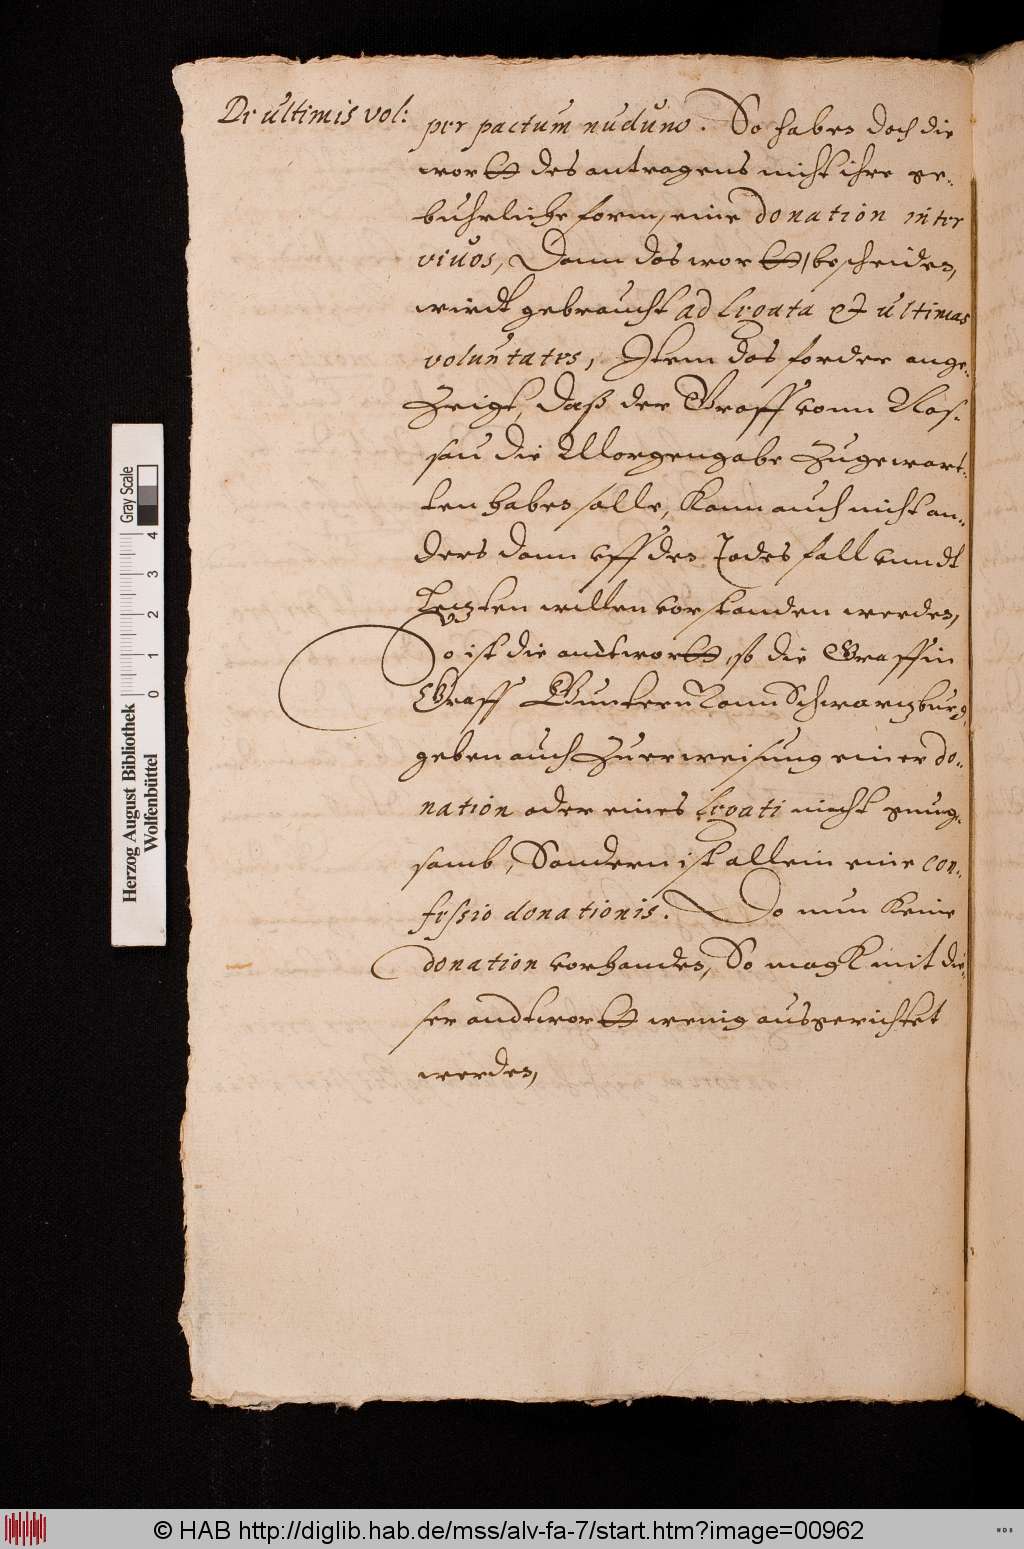 De ultimis vol:
per pactum nudum. So haben doch die
wortt des antragens nicht ihre ge-
buhrliche form, eine donation inter
vivos, Dann das wortt, bescheiden,
wirdt gebraucht ad legata et ultimas
voluntates, Item das forder ange-
Zeigt, daß der Graff vonn Nas-
sau die Morgengabe Zugewart-
ten haben solle, Kann auch nicht an-
ders dann uff den Todes fall unndt
Letzten willen vorstanden werden,
So ist die andtwortt, so die Graffin
Graff Guntern Vonn Schwartzburg,
geben auch Zuerweisung einer do-
nation oder eines legati nicht gnug-
samb, Sondern ist allein eine con-
fessio donationis. Do nun Keine
donation vorhanden, So magk mit die-
ser andtwortt wenig ausgerichtet
werden,
Gray Scale
0 1 2 3 4
Herzog August Bibliothek
Wolfenbüttel
© HAB http://diglib.hab.de/mss/alv-fa-7/start.htm?image=00962